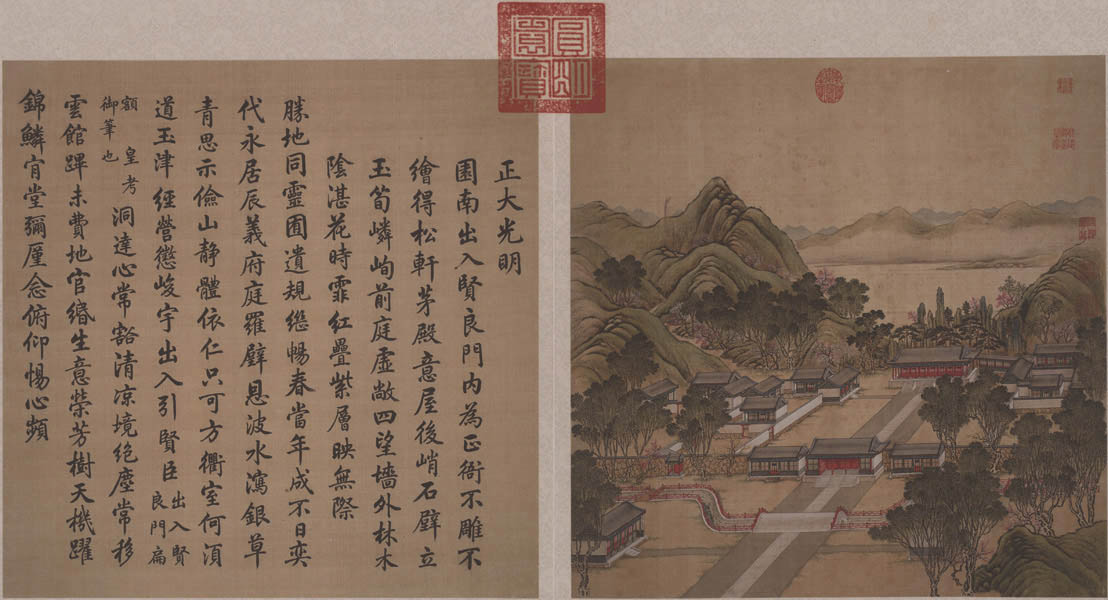 圓明園寶
正大光明
園南出入賢良門內為正衙不雕不
繪得松軒茅殿意屋後峭石壁立
玉筍嶙峋前庭虛敞四望墻外林木
陰湛花時霏紅疊紫層映無際
勝地同靈囿遺規繼暢春當年成不日奕
代永居辰義府庭羅壁恩波水瀉銀草
青思示儉山静體依仁只可方衢室何湏
道玉津經營懲峻宇出入引賢臣出入賢
良門扁
額皇考
御筆也
洞達心常豁清凉境絕塵常移
雲館蹕未費地官緡生意榮芳樹天機躍
錦鱗肎堂彌厪念俯仰惕心頻